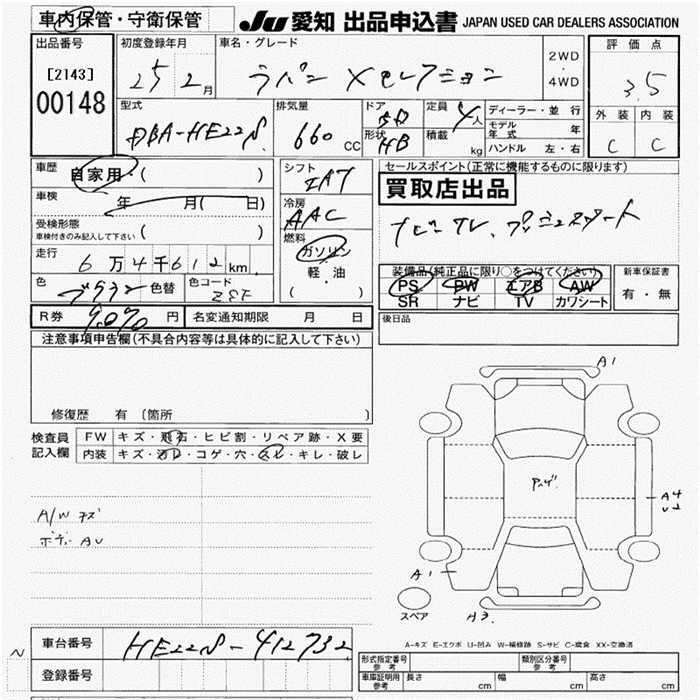 車内保管・守衛保管
Ju 愛知 出品申込書 JAPAN USED CAR DEALERS ASSOCIATION
出品番号
[2143]
00148
初度登録年月
25 2月
車名・グレード
ラパン Xセレクション
2WD
・
4WD
評価点
3.5
外装 内装
C C
型式
DBA-HE22S
排気量
660 CC
ドア
5D
形状
HB
定員
4人
積載
kg
ディーラー・並行
モデル年式 年
ハンドル 左・右
車歴
自家用・( )
車検
年 月( 日)
受検形態
車検付きのみ記入して下さい ( )
走行
6万4千612km
色
色替
色コード
ZEF
シフト
IAT
冷房
AAC
燃料
ガソリン
軽・油
( )
セールスポイント(正常に機能するものに限ります)
買取店出品
ナビ・TV、プッシュスタート
装備品(純正品に限り○をつけてください)
PS PW エアB AW
SR ナビ TV カワシート
新車保証書
有・無
後日品
R券 9.070 円
名変通知期限 月 日
注意事項申告欄(不具合内容等は具体的に記入して下さい)
修復歴 有〔箇所 〕
検査員
記入欄
FW キズ・飛石・ヒビ割・リペア跡・X要
内装 キズ・汚レ・コゲ・穴・スレ・キレ・破レ
A/W キズ
ボデーAU
A1
A4
A1
H3
スペア
A-キズ E-エクボ U-凹み W-補修跡 S-サビ C-腐食 XX-交換済
車台番号
HE22S-412732
登録番号
形式指定番号
参考
類別区分番号
参考
車庫証明用
参考
長さ cm
幅 cm
高さ cm